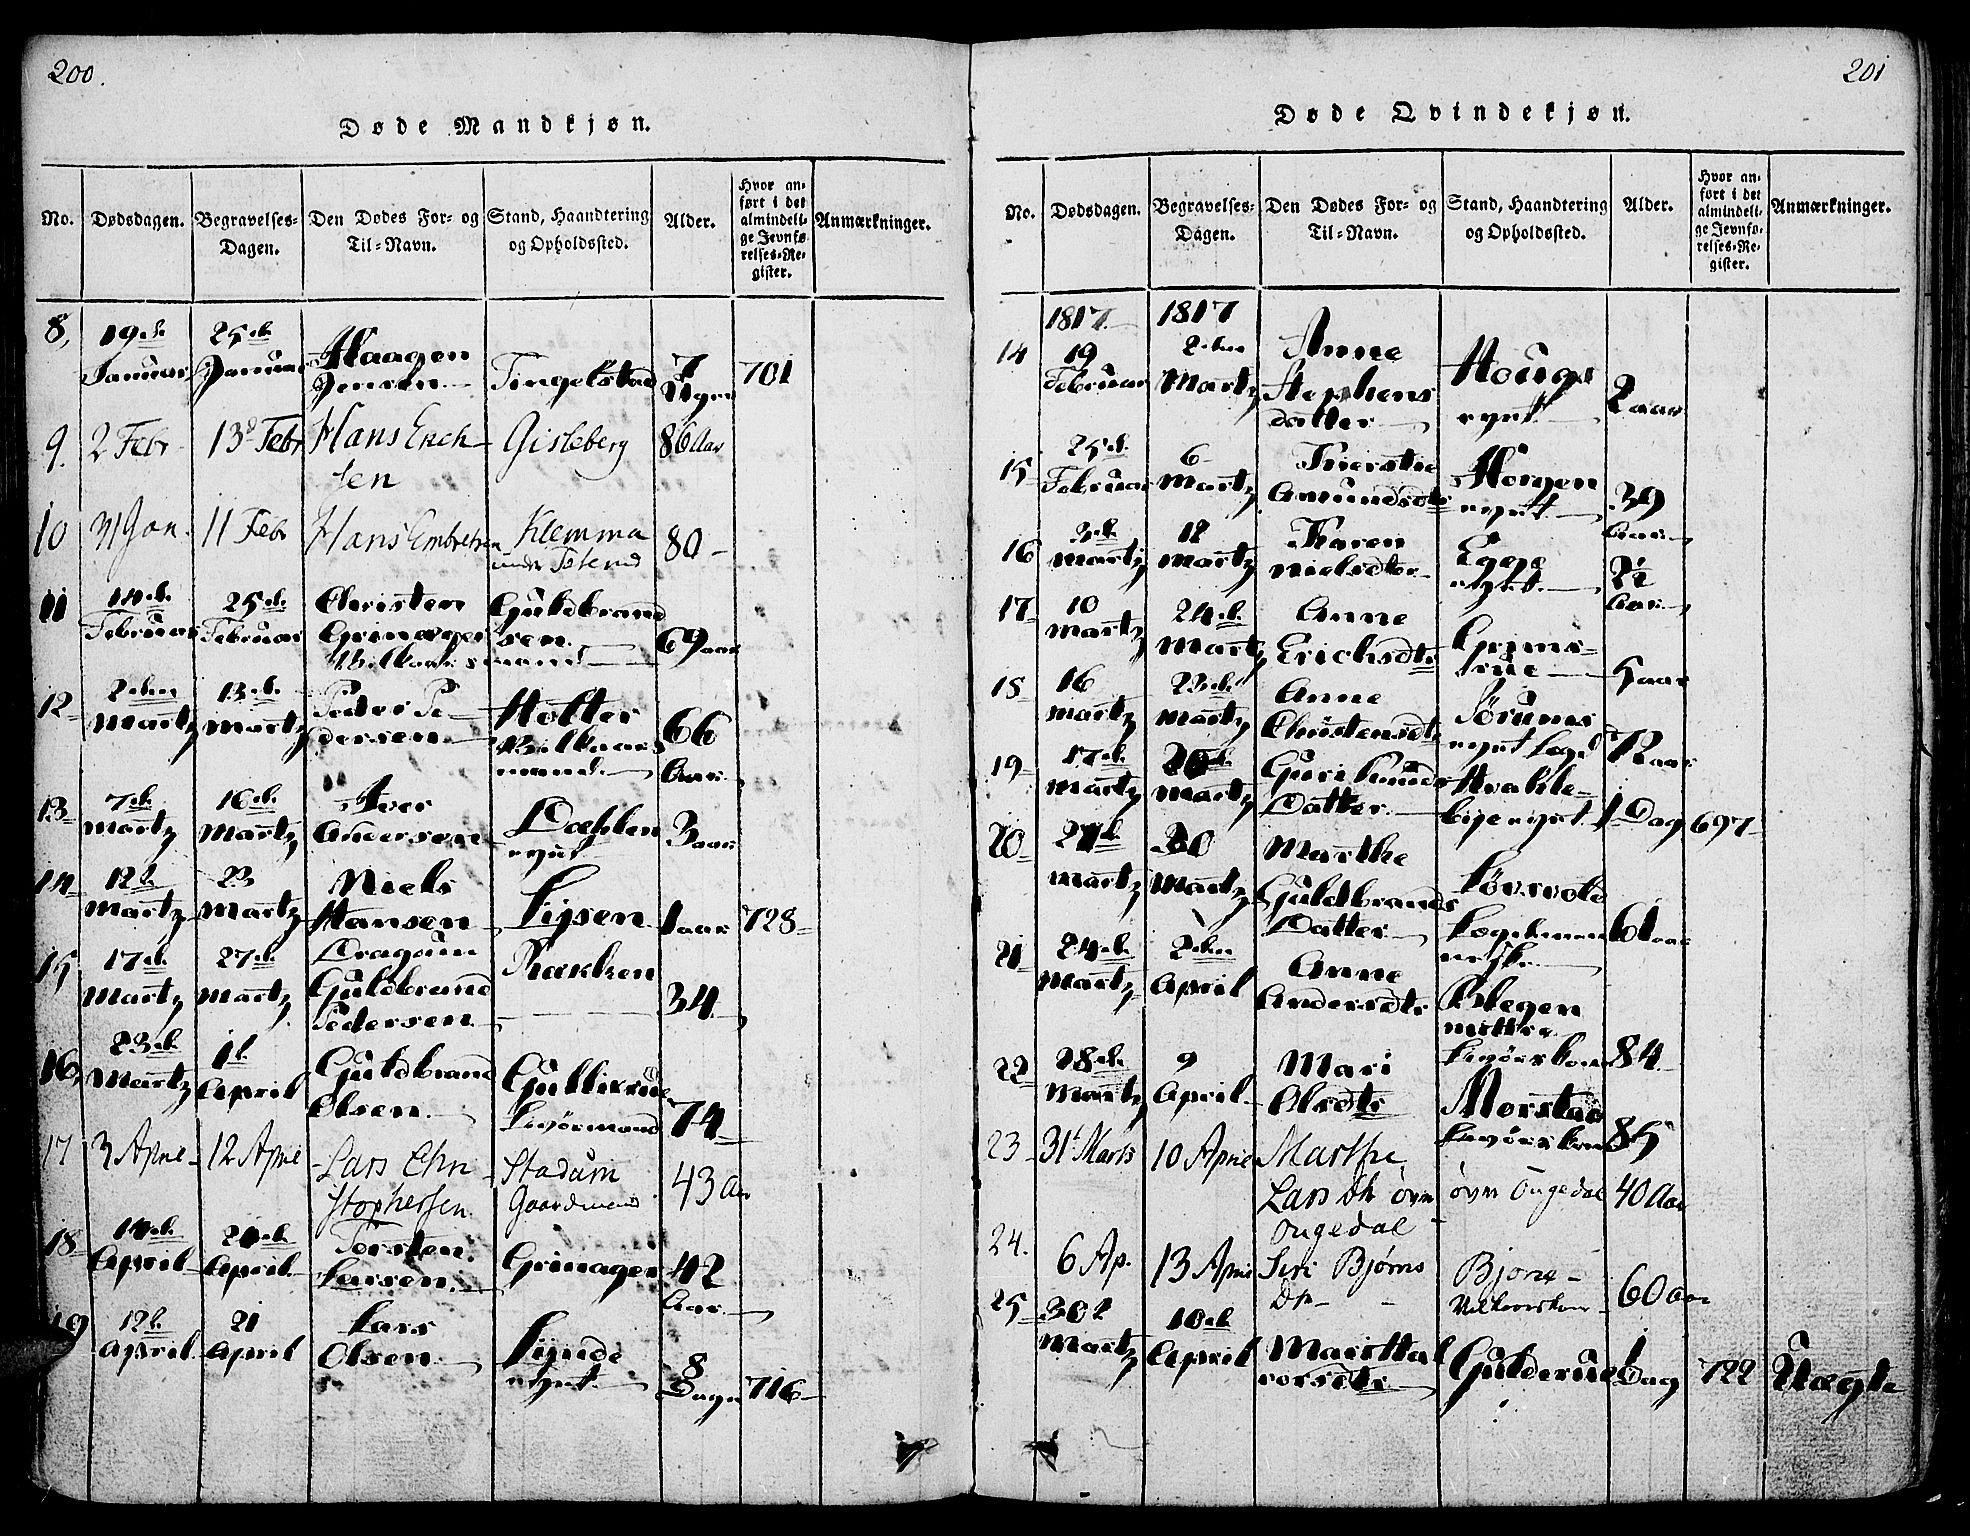 200.
Døde Mandkjøn.
No. Dødsdagen. Begravelses-Dagen. Den Dødes For- og Til-Navn. Stand, Haandtering og Opholdssted. Alder. Hvor anført i det almindelige Jevnførelses-Register. Anmærkninger.
8, 19de Januar 25de Januar Haagen Jensen Tingelstad 7 Uger 701
9. 2 Febr 13d Febr Hans Erichsen Gisleberg 86 Aar
10 31 Jan. 11 Febr Hans Embretsen Klemma under 80
11 14de Februar 25de Februar Christen Grinager Guldbrandsen Vilkaarsmand 69 aar
12 2den Martz 13de Martz Peder Pedersen Holter Vilkaarsmand 66 Aar
13 7de Martz 16de Martz Iver Andersen Dæhlen eyut 3 aar
14 12te Martz 23 Martz Niels Hansen Lysen 1 aar 728
15 17de Martz 27de Martz Dragoun Guldbrand Pedersen Rækken 34
16, 23de Martz 1te April Guldbrand Olsen Gullixrud Livørmand 74
17 3 Aprie 12 Aprie Lars Chrstophersen Stadum Gaardmand 43 Aar
18 14de April 20de April Torsten Larsen Grinager 42 Aar
19 12te April 21 April Lars Olsen Lynde eyut 8 Dage 716
201
Døde Qvindekjøn.
No. Dødsdagen. Begravelses-Dagen. Den Dødes For- og Til-Navn. Stand, Haandtering og Opholdssted. Alder. Hvor anført i det almindelige Jevnførelses-Register. Anmærkninger.
1817 1817
14 19 Februar 2den Martz Anne Stephens Datter Houg eynt 2 aar
15 25de Februar 6 Martz Kierstie Amundsdtr Horgen eynt 39 Aar
16 3de Martz 12 Martz Karen Nielsdtr Egge eynt Aar
17 10 Martz 24de Martz Anne Erichsdtr Grimsrue 5 aar
18 16 Martz 23de Martz Anne Christensdtr Sørums eynt Legd 72 aar
19 17de Martz 20de Martz Guri Knuds Datter Hvalebye eynt 1 Dag 697
20 27de Martz 30 Martz Marthe Guldbrands Datter Løvsvold Lægdsmenneske 61 aar
21 24de Martz 2den April Anne Andersdtr Blegen Livørskone 84
22 28de Martz 9 April Mari Olsdtr Morstad Livørskone 85
23 31t Marts 10 Aprie Marthe Lars Dtr øvre Ougedal øvre Ougedal 40 Aar
24. 6 Ap. 13 Aprie Siri Bjørns Dtr Bjone 60 Aar
25 30t Martz 10de April Marit Halvorsdtr Gulderud 1 Dag 722 Uægte